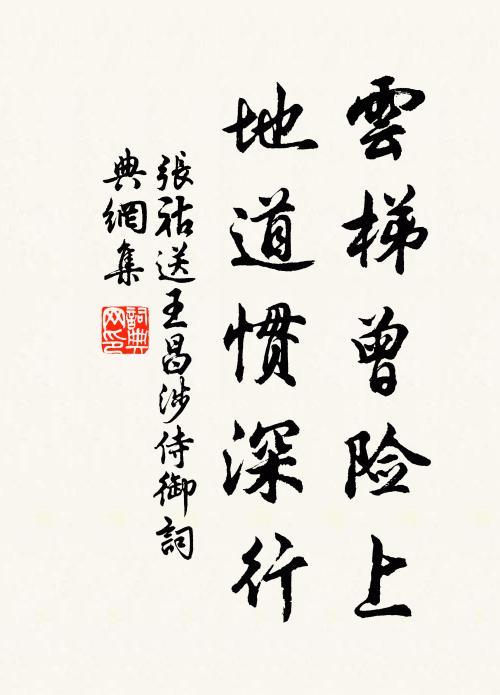 雲梯曾险上
地道慣深行
張祜送王昌涉侍御詞
典網集
詞典
网印